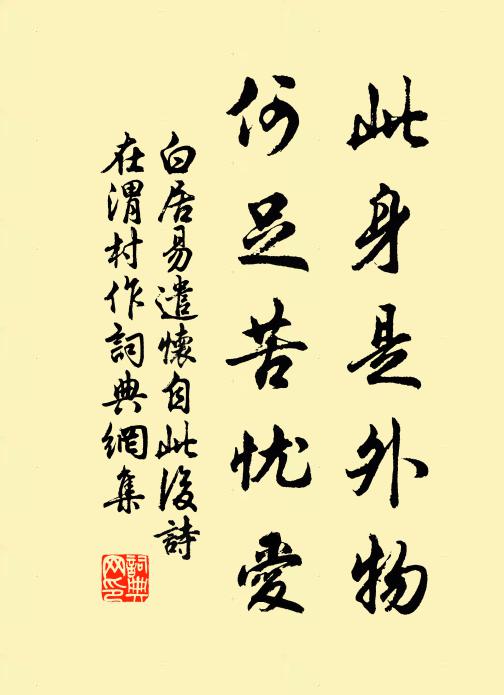 此身是外物
何足苦忧愛
白居易遣懷自此後詩
在渭村作詞典網集
詞典
网印